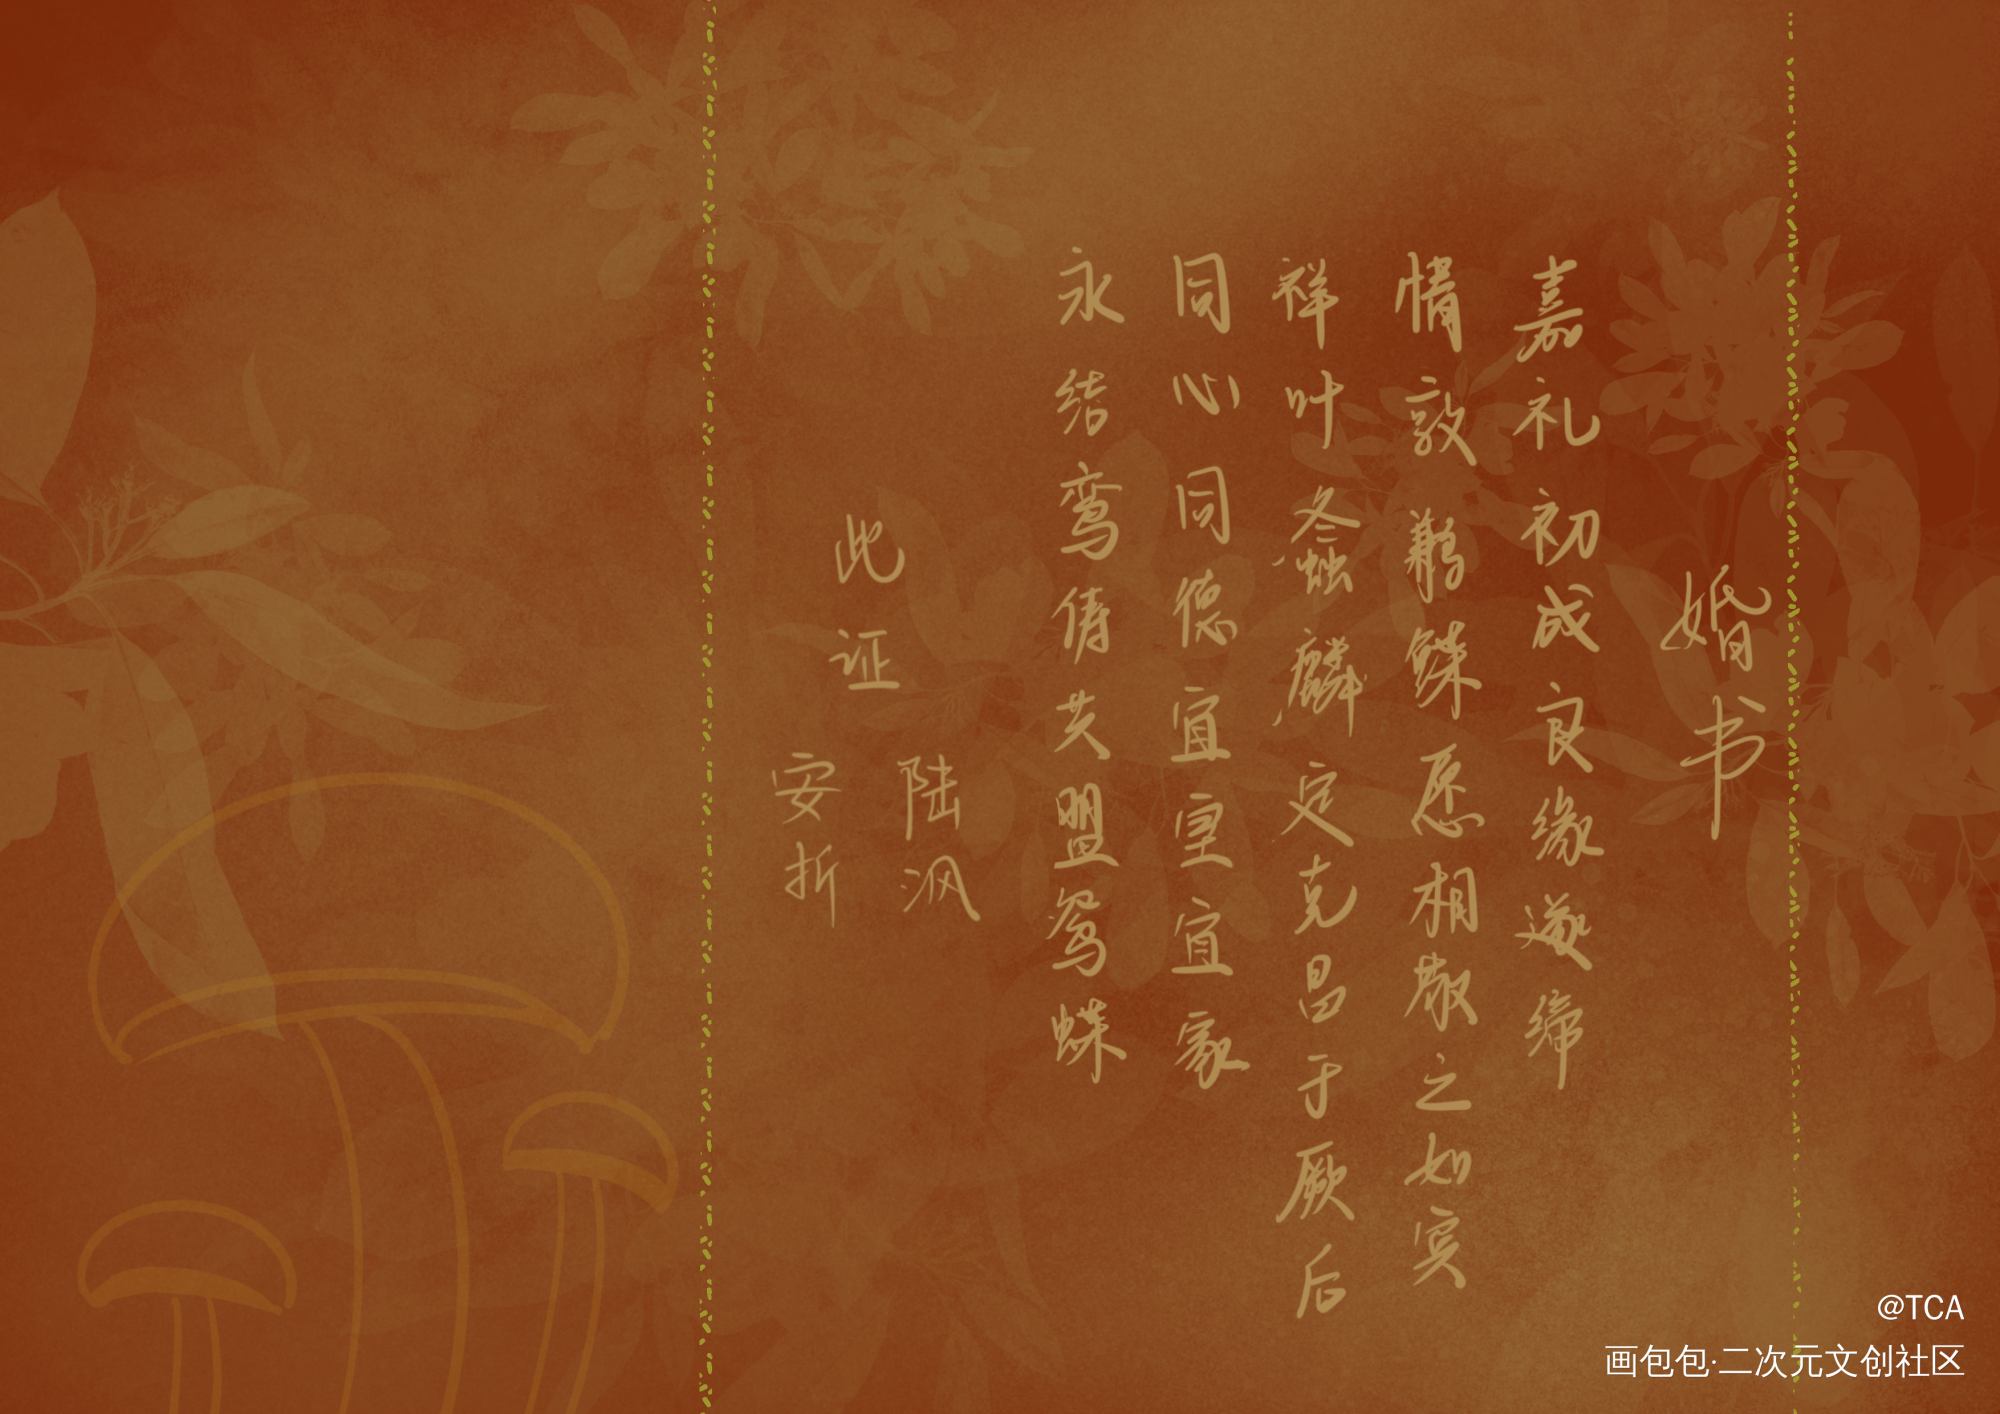 婚书
嘉礼初成良缘遂缔
情敦鹣鲽愿相敬之如宾
祥叶螽麟定克昌于厥后
同心同德宜室宜家
永结鸾俦共盟鸳蝶
此证
陆沨
安折
@TCA
画包包·二次元文创社区